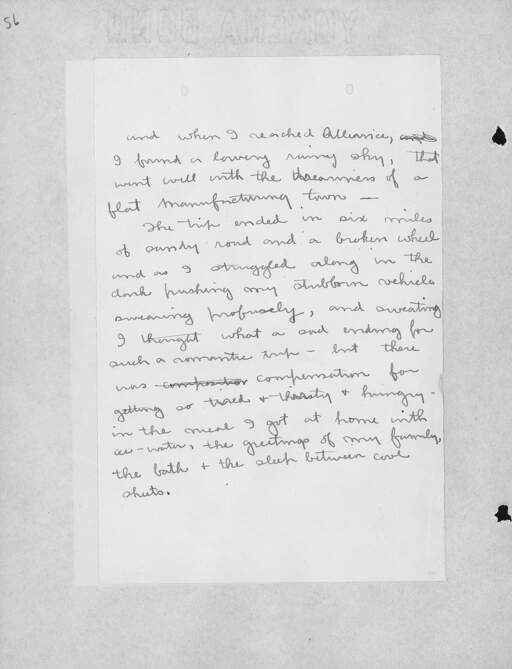 56
and when I reached Alliance, and
I found a lowery rainy sky, that
went well with the dreariness of a
flat manufacturing town —
The trip ended in six miles
of sandy road and a broken wheel
and as I struggled along in the
dark pushing my stubborn vehicle
swearing profusely, and sweating
I thought what a sad ending for
such a romantic trip – but there
was composition compensation for
getting so tired & thirsty & hungry -
in the meal I got at home with
ice-water, the greetings of my family,
the bath & the sleep between cool
sheets.